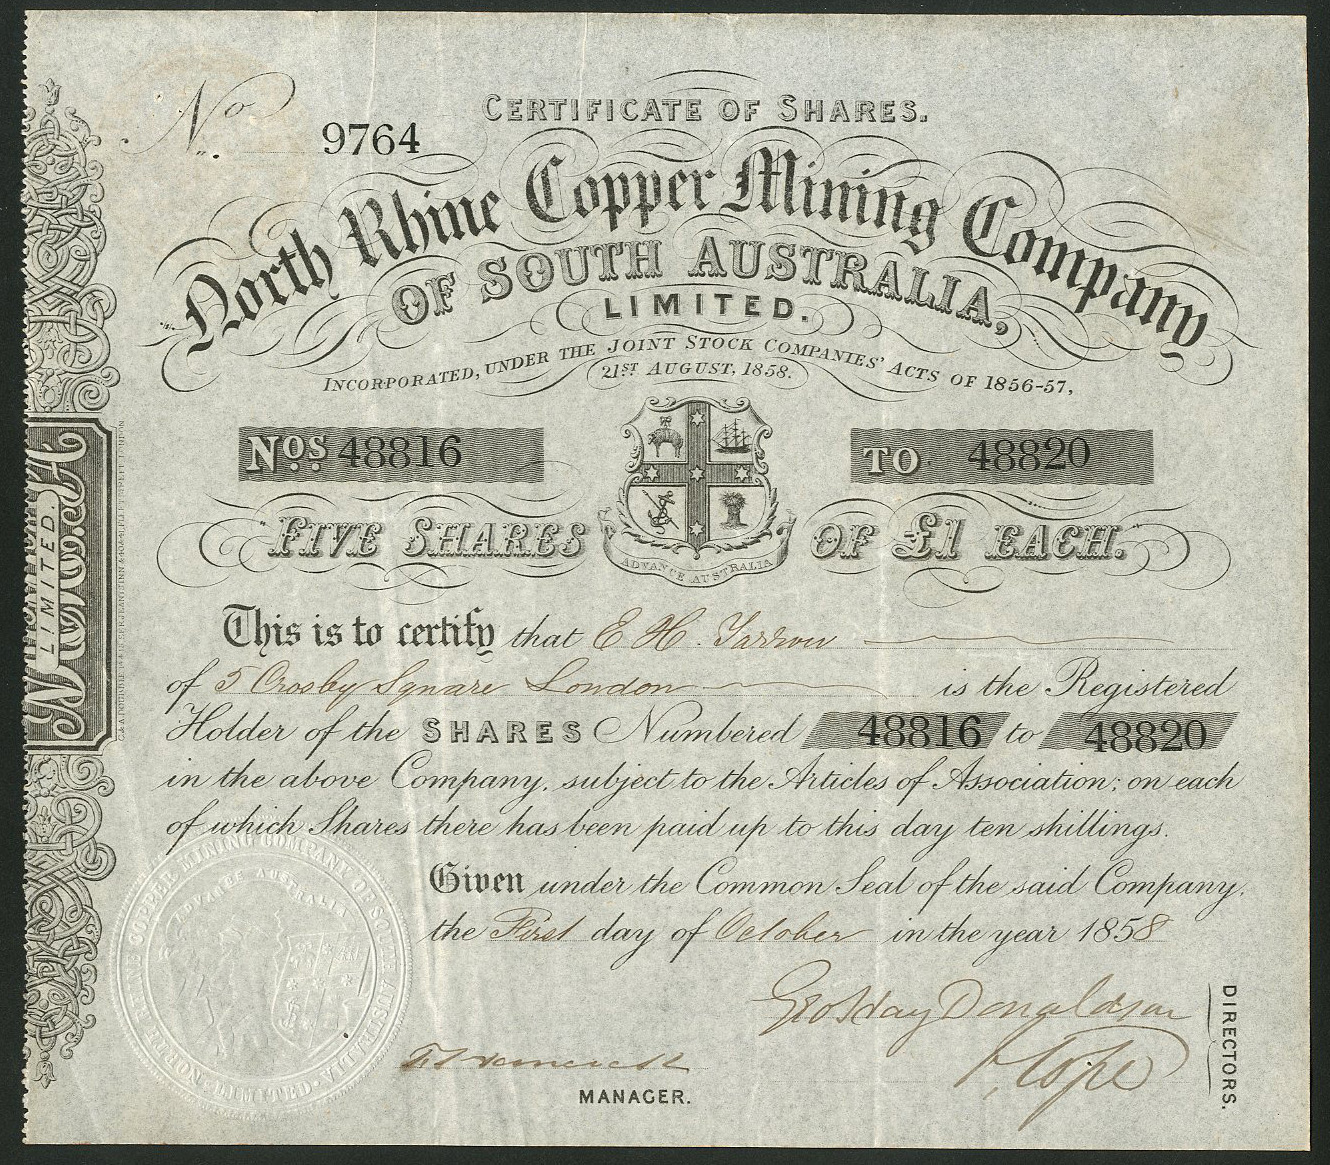 No 9764
CERTIFICATE OF SHARES.
North Rhine Copper Mining Company
OF SOUTH AUSTRALIA,
LIMITED.
INCORPORATED, UNDER THE JOINT STOCK COMPANIES' ACTS OF 1856-57,
21ST AUGUST, 1858.
NOS. 48816 TO 48820
FIVE SHARES OF £1 EACH.
ADVANCE AUSTRALIA
This is to certify that E H. Yarrow
of 5 Crosby Square London is the Registered
Holder of the SHARES Numbered 48816 to 48820
in the above Company, subject to the Articles of Association; on each
of which Shares there has been paid up to this day ten shillings.
Given under the Common Seal of the said Company,
the First day of October in the year 1858
Geo Hay Donaldson
DIRECTORS.
MANAGER.
NORTH RHINE COPPER MINING COMPANY OF SOUTH AUSTRALIA
LIMITED
ADVANCE AUSTRALIA
LIMITED.